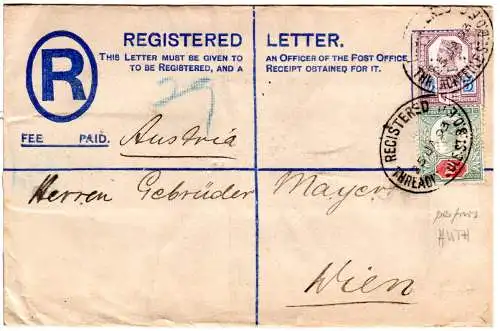 REGISTERED LETTER.
R
THIS LETTER MUST BE GIVEN TO AN OFFICER OF THE POST OFFICE
TO BE REGISTERED, AND A RECEIPT OBTAINED FOR IT.
FEE PAID.
Austria
REGISTERED
Herren Gebrüder Mayer
Wien
HUTH